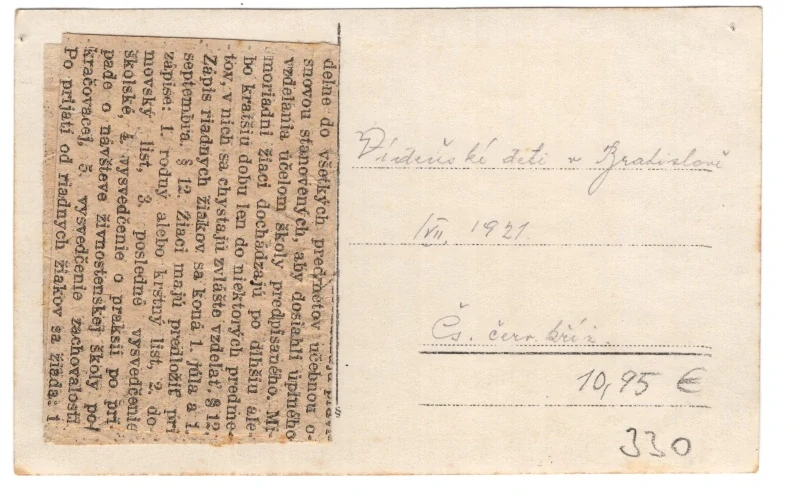 delne do všetkých predmetov učebnou o-
snovou stanovených, aby dosiahli úplného
vzdelania účelom školy predpísaného. Mi-
moriadni žiaci dochádzajú po dlhšiu ale-
bo kratšiu dobu len do niektorých predme-
tov, v nich sa chystajú zvlášte vzdelať. § 12.
Zápis riadnych žiakov sa koná 1. júla a 1.
septembra. § 12. Žiaci majú predložiť pri
zápise: 1. rodný alebo krstný list, 2. do-
movský list, 3. posledné vysvedčenie
školské, 4. vysvedčenie o praksii po prí
pade o návšteve živnostenskej školy po-
kračovacej, 5. vysvedčenie zachovalosti
Po prijatí od riadnych žiakov sa žiada: 1
Vídeňské děti v Bratislavě
VII, 1921
Čs. červ. kříž.
10,95 €
330